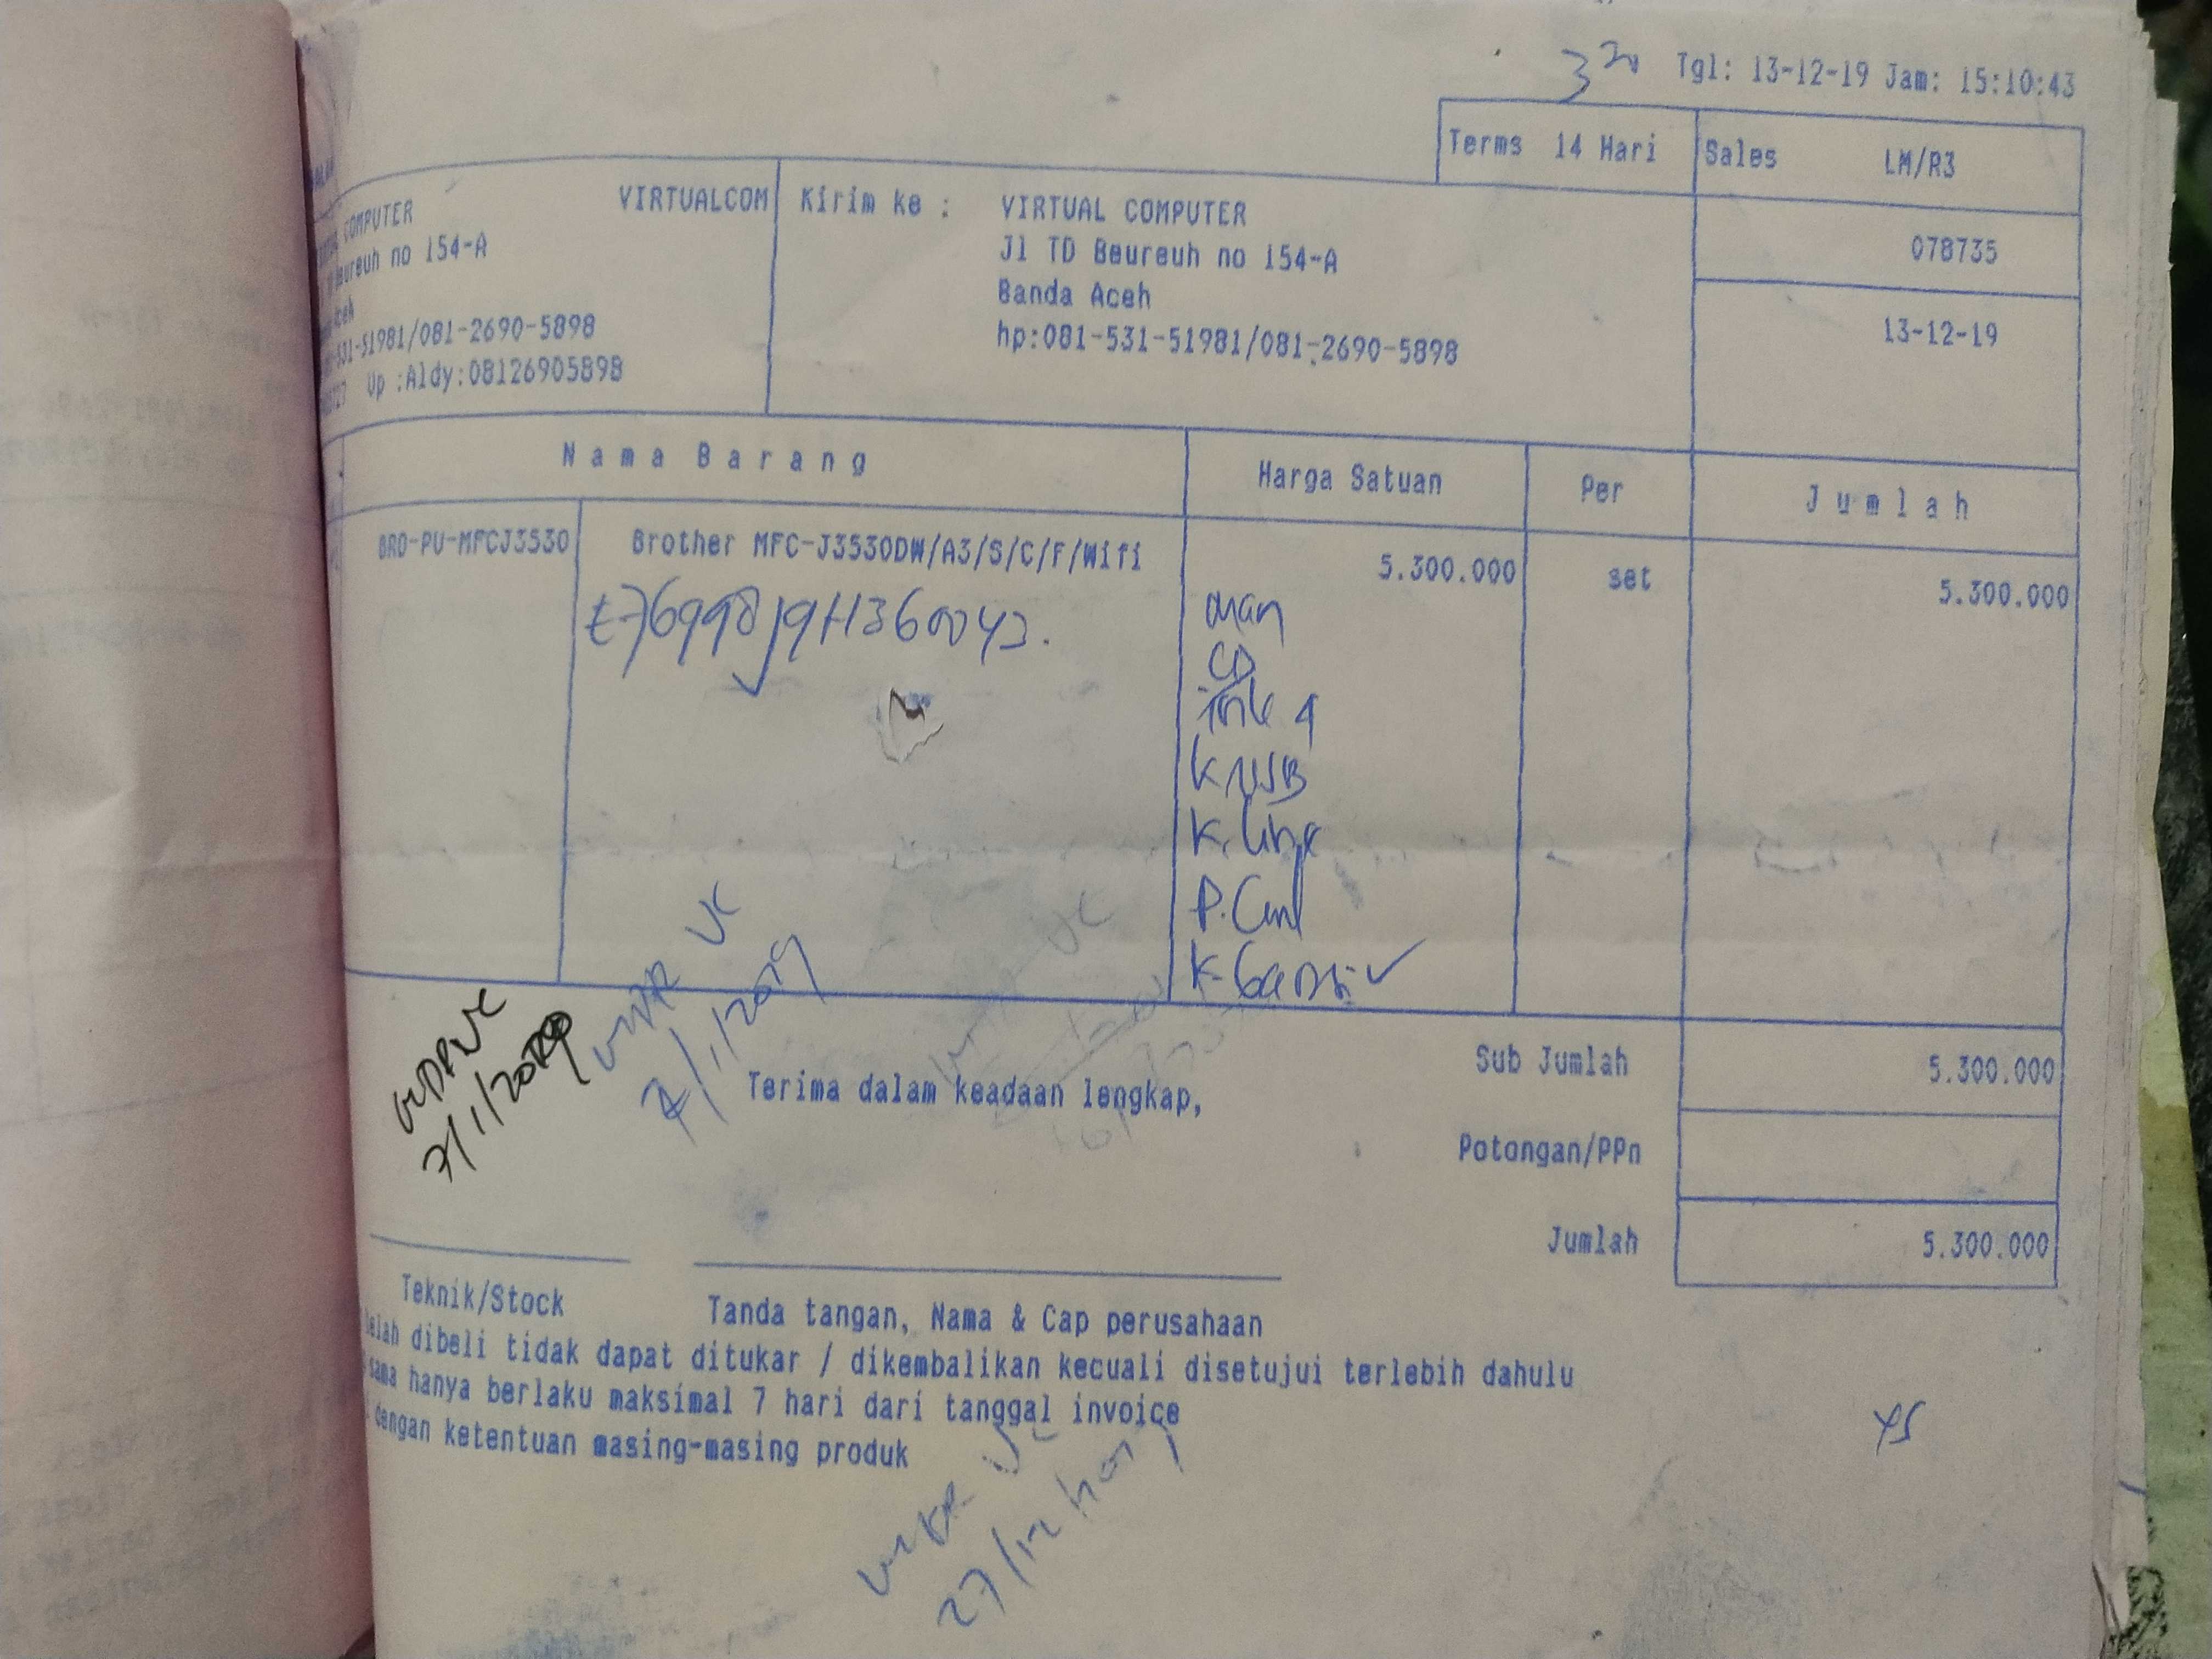 Tgl: 13-12-19 Jam: 15:10:43
Terms 14 Hari Sales LM/R3
COMPUTER VIRTUALCOM
Beureuh no 154-A
-531-51981/081-2690-5898
Up :Aldy:08126905898
Kirim ke : VIRTUAL COMPUTER
Jl TD Beureuh no 154-A
Banda Aceh
hp:081-531-51981/081-2690-5898
078735
13-12-19
Nama Barang Harga Satuan Per Jumlah
BRO-PU-MFCJ3530 Brother MFC-J3530DW/A3/S/C/F/Wifi 5.300.000 set 5.300.000
man
CD
ink 4
K USB
K. Line
P. Cart
K. Garansi ✓
VC
7/1/2019
7/1/2019
Terima dalam keadaan lengkap,
Sub Jumlah 5.300.000
Potongan/PPn
Jumlah 5.300.000
Teknik/Stock Tanda tangan, Nama & Cap perusahaan
telah dibeli tidak dapat ditukar / dikembalikan kecuali disetujui terlebih dahulu
sama hanya berlaku maksimal 7 hari dari tanggal invoice
dengan ketentuan masing-masing produk
27/12